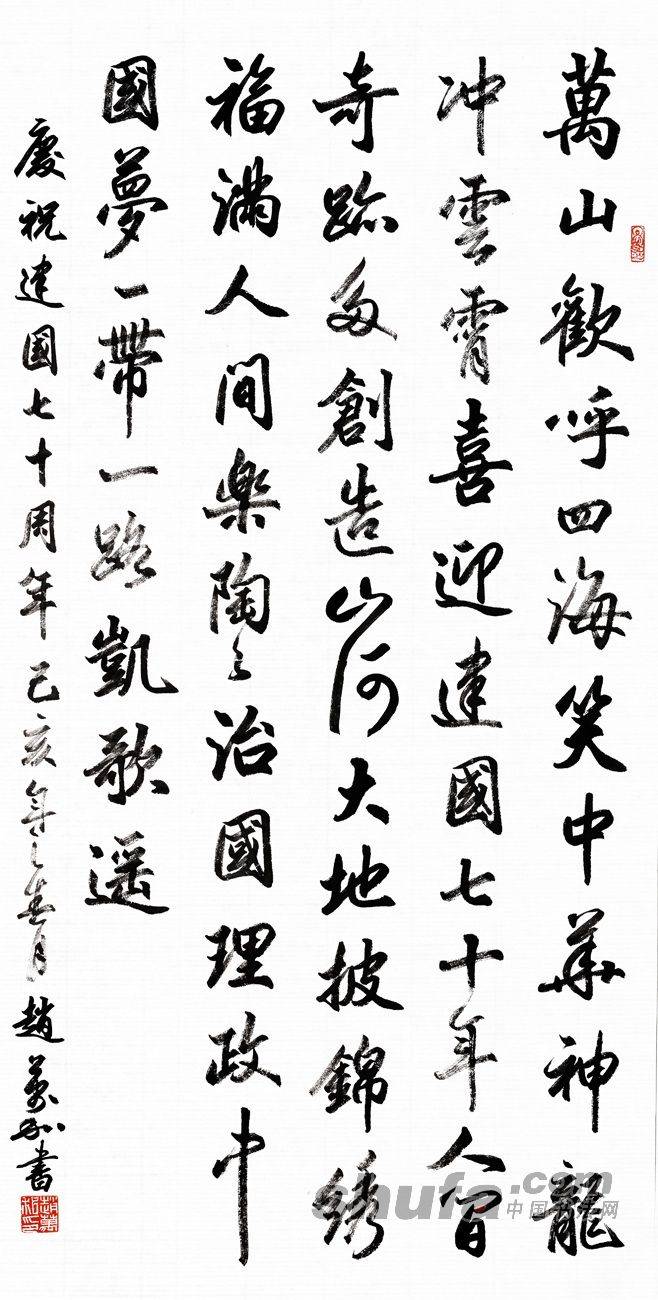 萬山歡呼四海笑中華神龍
冲雲霄喜迎建國七十年人間
奇跡多創造山河大地披錦綉
福滿人間樂陶々治國理政中
國夢一帶一路凱歌遥
慶祝建國七十周年己亥年之春月趙萬書
shufa.com
中国书法网